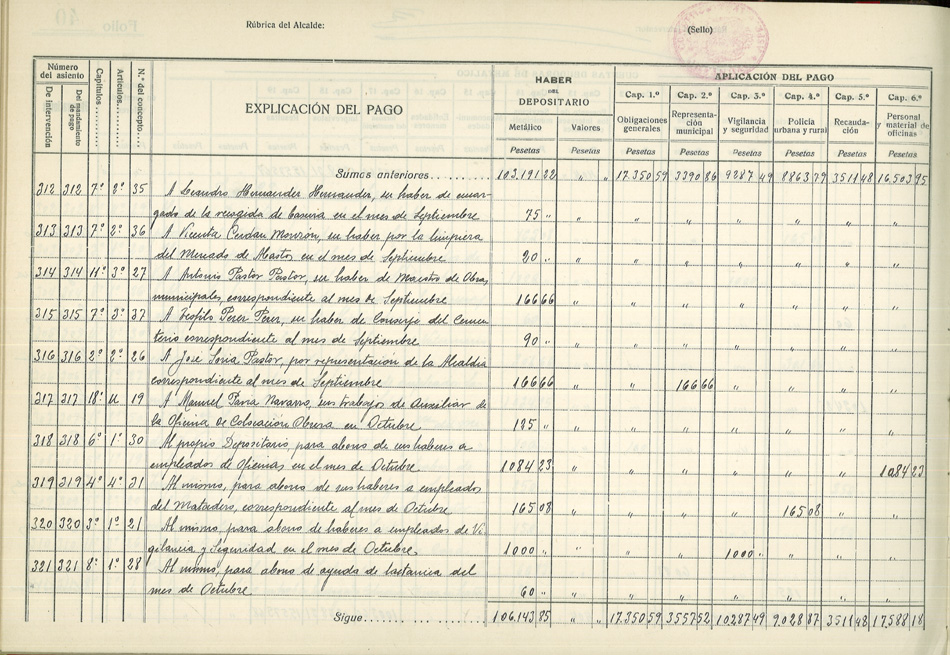 Rúbrica del Alcalde: (Sello)
Número del asiento
De intervención
Del mandamiento de pago
Capítulos
Artículos
N.º del concepto
EXPLICACIÓN DEL PAGO
HABER DEL DEPOSITARIO
Metálico Valores
Pesetas Pesetas
APLICACIÓN DEL PAGO
Cap. 1.º Cap. 2.º Cap. 3.º Cap. 4.º Cap. 5.º Cap. 6.º
Obligaciones generales
Representación municipal
Vigilancia y seguridad
Policía urbana y rural
Recaudación
Personal y material de oficinas
Pesetas Pesetas Pesetas Pesetas Pesetas Pesetas
Sumas anteriores 103.191 22 " " 17.350 59 3390 86 9287 49 8863 79 3511 48 16.503 95
312 312 7º 2º 35 A Leandro Hernandez Hernandez, su haber de encar-
gado de la recogida de basura en el mes de Septiembre 75 " " " " " " " "
313 313 7º 2º 36 A Vicenta Cerdan Monzón, su haber por la limpieza
del Mercado de Abastos en el mes de Septiembre 20 " " " " " " " "
314 314 11º 3º 27 A Antonio Pastor Pastor, su haber de Maestro de Obras
municipales, correspondiente al mes de Septiembre 166 66 " " " " " " "
315 315 7º 3º 37 A Teófilo Perez Perez, su haber de Conserje del Cemen-
terio correspondiente al mes de Septiembre 90 " " " " " " " "
316 316 2º 2º 26 A José Soria Pastor, por representación de la Alcaldía
correspondiente al mes de Septiembre 166 66 " " 166 66 " " " "
317 317 18º u 19 A Manuel Parra Navarro, sus trabajos de Auxiliar de
la Oficina de Colocación Obrera en Octubre 125 " " " " " " " "
318 318 6º 1º 30 Al propio Depositario para abono de sus haberes a
empleados de Oficinas, en el mes de Octubre 1084 23 " " " " " " 1.084 23
319 319 4º 4º 31 Al mismo, para abono de sus haberes a empleados
del Matadero, correspondiente al mes de Octubre 165 08 " " " " 165 08 " "
320 320 3º 1º 21 Al mismo, para abono de haberes a empleados de Vi-
gilancia y Seguridad en el mes de Octubre 1000 " " " " 1000 " " " "
321 321 8º 1º 28 Al mismo, para abono de ayuda de lactancia del
mes de Octubre 60 " " " " " " " "
Sigue 106.143 85 " " 17.350 59 3557 52 10287 49 9.028 87 3511 48 17.588 18